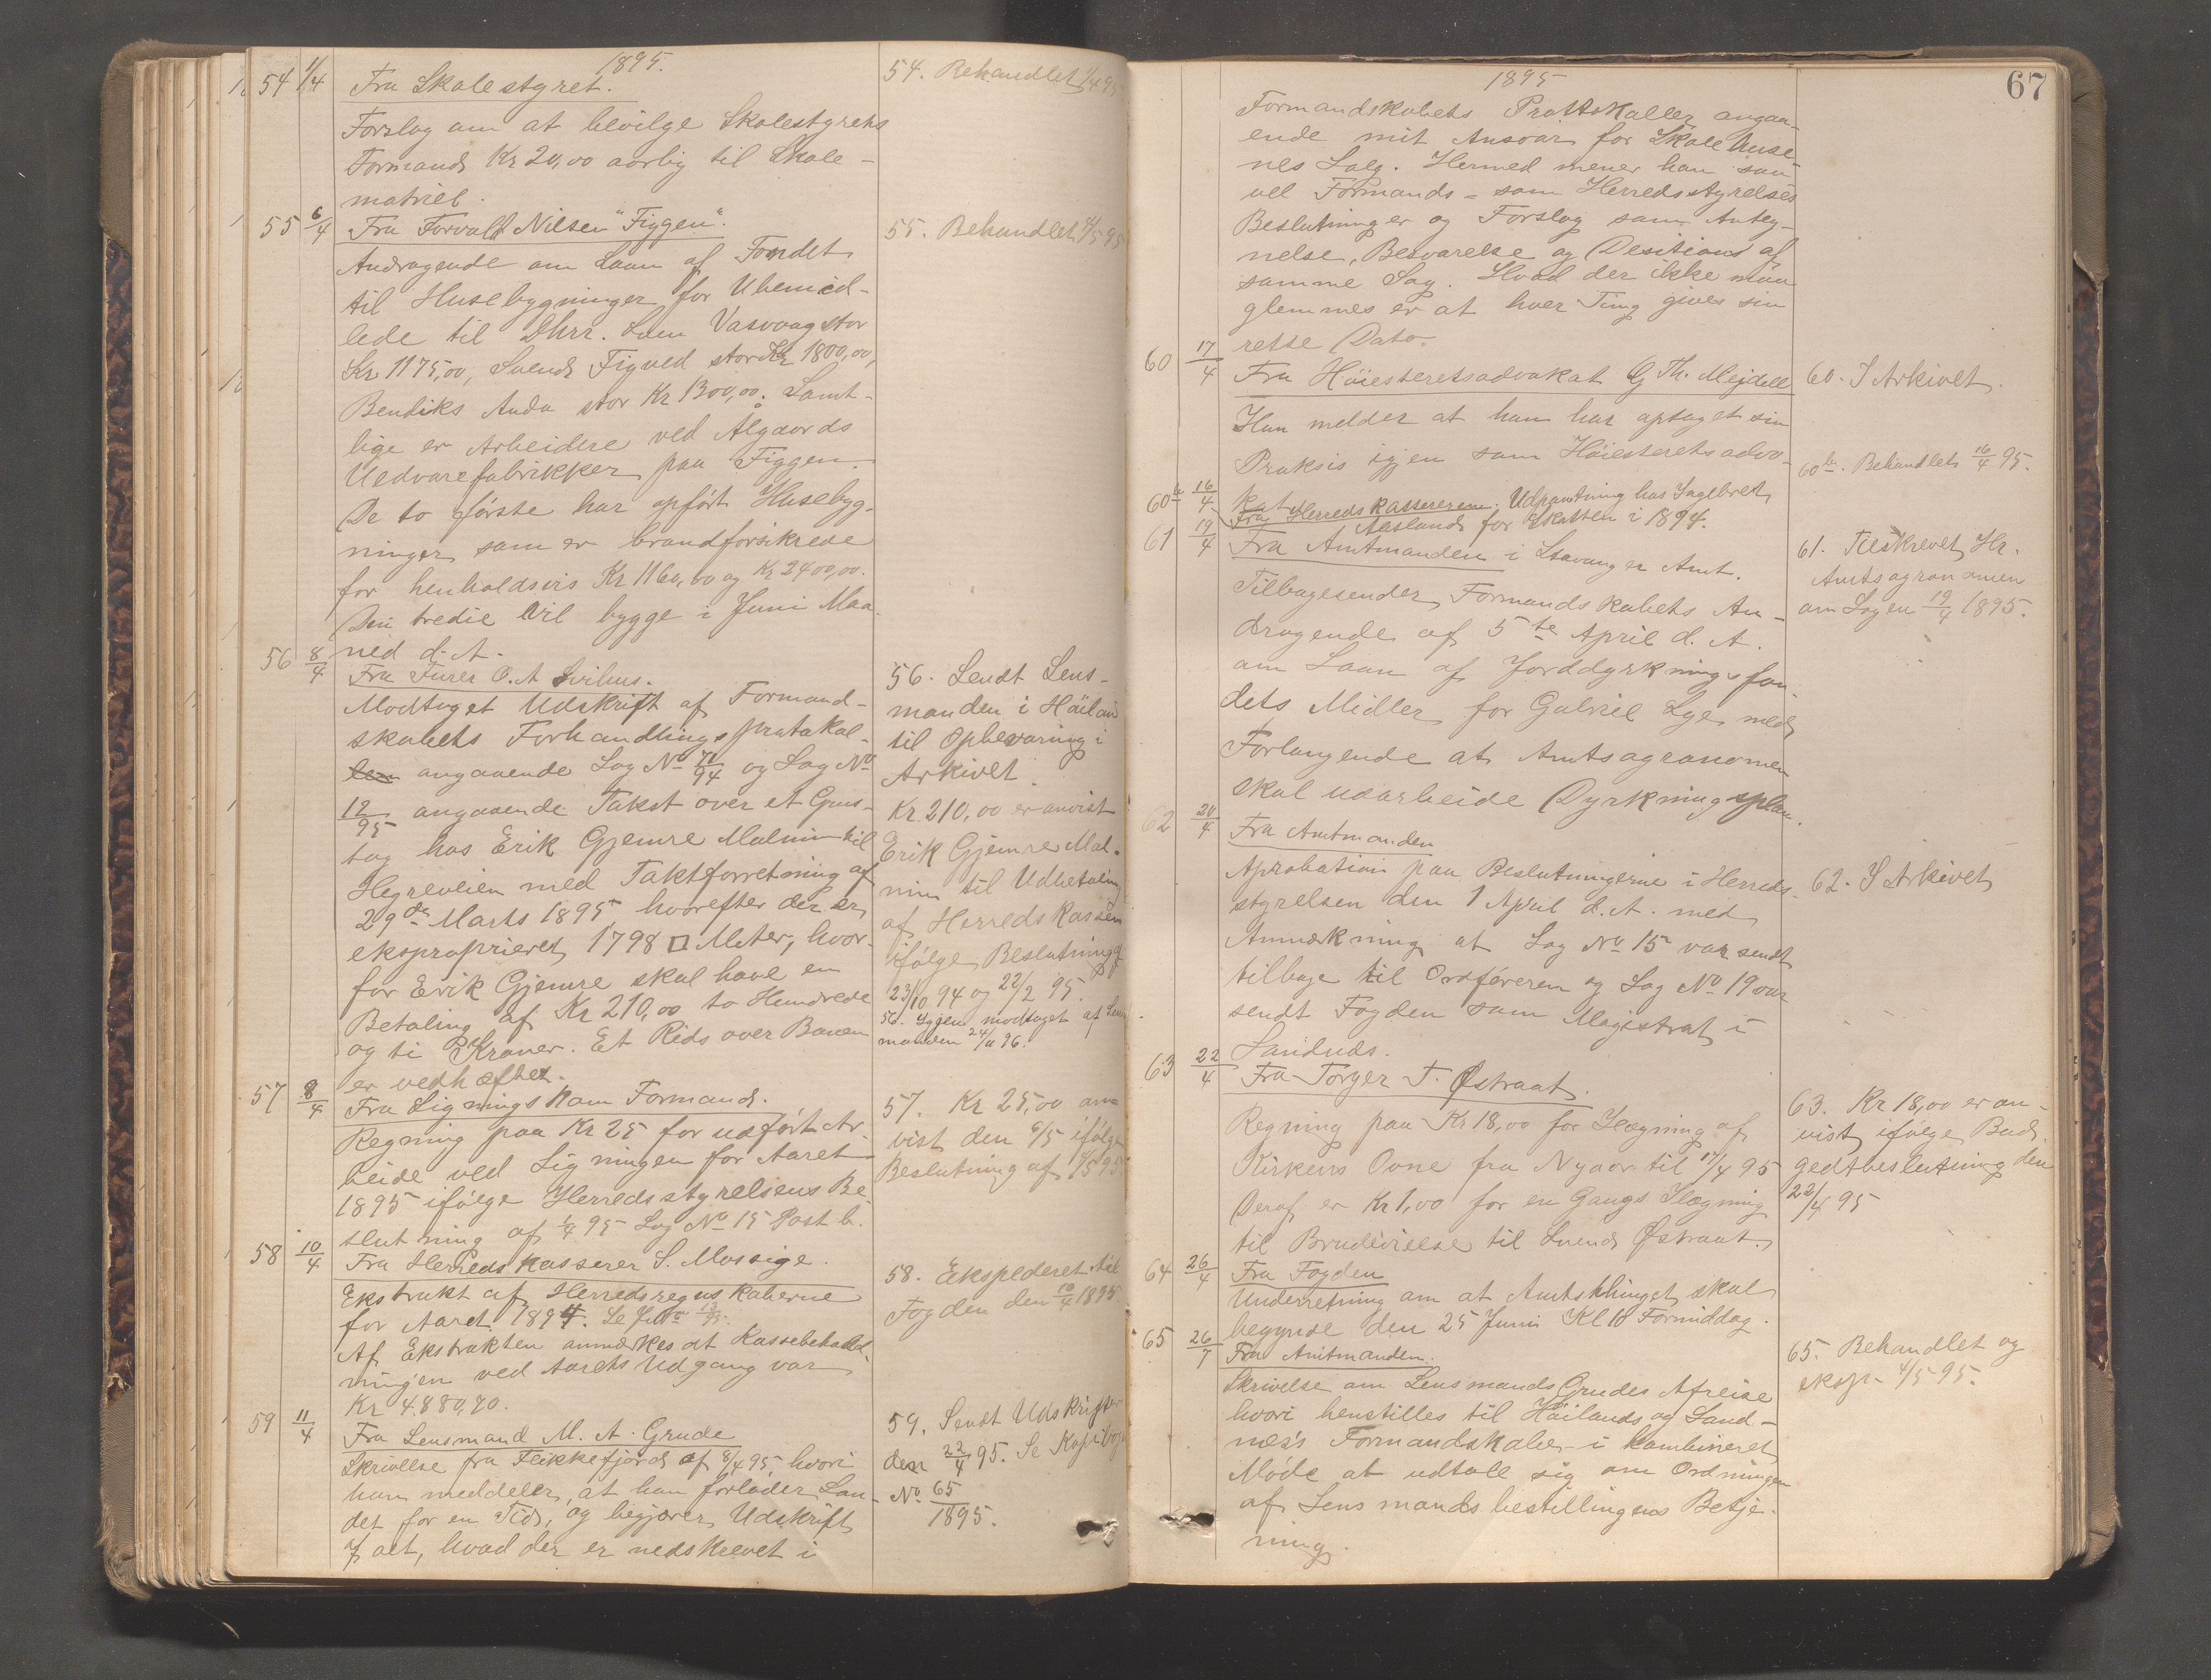 1895.
54 1/4 Fra Skolestyret.
Forslag om at bevilge Skolestyrets
Formand Kr 20,00 aarlig til Skole-
matriel.
54. Behandlet 1/4 95
55 6/4 Fra Torvald Nilsen "Figgen".
Andragende om Laan af Fondet
til Husebygninger for Ubemid-
lede til Dhrr. Lem Vasvaag stor
Kr 1175,00, Svend Figved stor Kr 1800,00,
Bendiks Anda stor Kr 1300,00. Samt-
lige er Arbeidere ved Ålgaards
Uldvarefabrikker paa Figgen.
De to første har opført Husebyg-
ninger som er brandforsikrede
for henholdsvis Kr 1160,00 og Kr 2400,00.
Den tredie vil bygge i Juni Maa-
ned d. A.
55. Behandlet 4/5 95
56 8/4 Fra Furer O. A Svihus.
Modtaget Udskrift af Formand-
skabets Forhandlingsprotokol-
len angaaende Sag No 71/94 og Sag No
12/95 angaaende Takst over et Grus-
tag hos Erik Gjemre Malmin til
Hegreveien med Taktforretning af
29de Marts 1895, hvorefter der er
eksproprieret 1798 □ Meter, hvor-
for Erik Gjemre skal have en
Betaling af Kr 210,00 to Hundrede
og ti Kroner. Et Rids over Banen
er vedhæftet.
56. Sendt Lens-
manden i Høiland
til Opbevaring i
Arkivet.
Kr. 210,00 er anvist
Erik Gjemre Mal-
min til Udbetaling
af Herredskassen
ifølge Beslutning af
23/10 94 og 22/2 95.
56. Igjen modtaget af Lens
manden 24/11 96.
57 8/4 Fra Ligningskom Formand.
Regning paa Kr 25 for udført Ar-
beide ved Ligningen for Aaret
1895 ifølge Herredsstyrelsens Be-
slutning af 1/4 95 Sag No 15 Post b.
57. Kr 25,00 an-
vist den 6/5 ifølge
Beslutning af 4/5 95
58 10/4 Fra Herredskasserer S. Mossige.
Ekstrakt af Herredsregnskaberne
for Aaret 1894. Se J. No 13/95.
Af Ekstrakten anmærkes at Kassebehold-
ningen ved Aarets Udgang var
Kr 4.880,70.
58. Ekspederet til
Fogden den 10/4 1895
59 11/4 Fra Lensmand M. A. Grude
Skrivelse fra Flikkefjord af 8/4 95, hvori
han meddeler, at han forlader Lan-
det for en Tid, og begjærer Udskrift
af alt, hvad der er nedskrevet i
59. Sendt Udskrifter
den 22/4 95. Se Kopibog
No 65
1895.
67
1895
Formandskabets Protokoller angaa-
ende mit Ansvar for Skolehuse-
nes Salg. Hermed mener han saa-
vel Formands- som Herredsstyrelses
Beslutninger og Forslag som Anteg-
nelse, Besvarelse og Desition af
samme Sag. Hvad der ikke maa
glemmes er at hver Ting gives sin
rette Dato.
60 17/4 Fra Høiesteretsadvokat G Th. Mejdell
Han melder at han har optaget sin
Praksis igjen som Høiesteretsadvo-
kat
60. I Arkivet.
60b 16/4 Fra Herredskassereren. Udpantning hos Ingebret
Aasland for Skatten i 1894.
60b. Behandlet 16/4 95.
61 19/4 Fra Amtmanden i Stavanger Amt.
Tilbagesender Formandskabets An-
dragende af 5te April d. A.
om Laan af Jorddyrkningsfon-
dets Midler for Gabriel Lye med
Forlangende at Amtsagronomen
skal udarbeide Dyrkningsplan.
61. Tilskrevet Hr.
Amtsagronomen
om Sagen 19/4 1895.
62 20/4 Fra Amtmanden
Aprobation paa Beslutningerne i Herreds-
styrelsen den 1 April d. A. med
Anmærkning at Sag No 15 var sendt
tilbage til Ordføreren og Sag No 19 var
sendt Fogden som Magistrat i
Sandnes.
62. I Arkivet
63 22/4 Fra Torger T. Østraat.
Regning paa Kr 18,00 for Ilægning af
Kirkens Ovne fra Nyaar til 17/4 95
Deraf er Kr 1,00 for en Gangs Ilægning
til Brudevielse til Svend Østraat.
63. Kr 18,00 er an-
vist ifølge Bud-
gedtbeslutning den
22/4 95
64 26/4 Fra Fogden
Underretning om at Amtsthinget skal
begynde den 25 Juni Kl 10 Formiddag.
65 26/7 Fra Amtmanden.
Skrivelse om Lensmand Grudes Afreise
hvori henstilles til Høilands og Sand-
nes's Formandskaber i kombineret
Møde at udtale sig om Ordningen
af Lensmandsbestillingens Betje-
ning.
65. Behandlet og
eksp. 4/5 95.